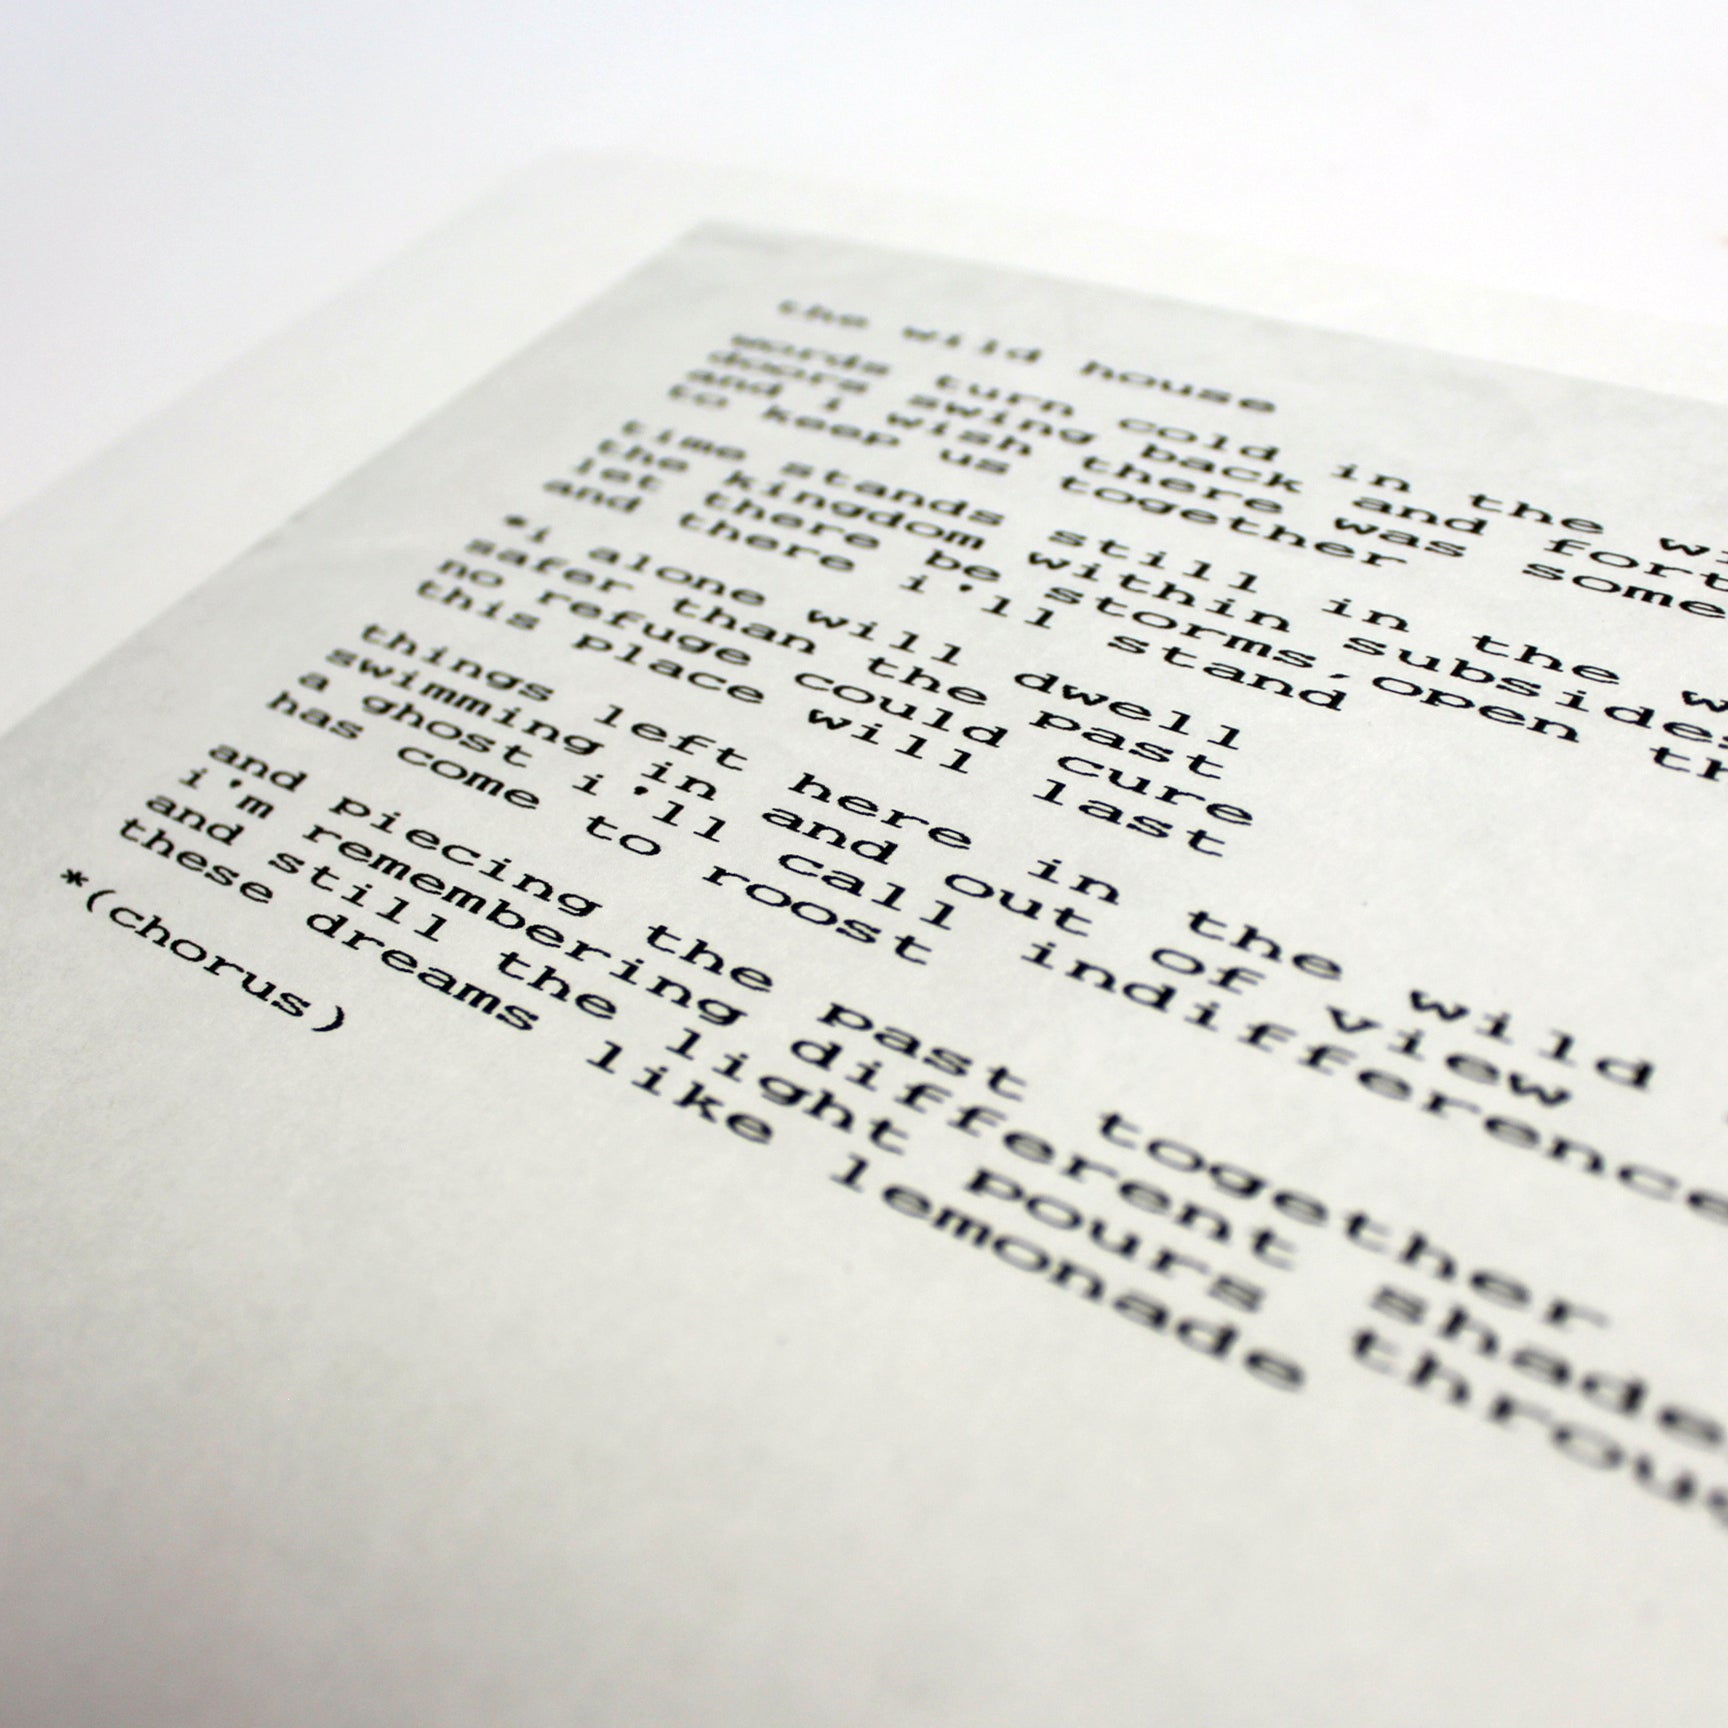 the wild house
words turn cold in the
doors swing back and
and i wish there was some
to keep us together
time stands still in the
the kingdom within subsides
let there be storms, open
and there i'll stand
*i alone will dwell
safer than the past
no refuge could cure
this place will last
things left here in the wild
swimming in and out of view
a ghost i'll call indifference
has come to roost
and piecing the past together
i'm remembering different shades
and still the light pours
these dreams like lemonade
*(chorus)